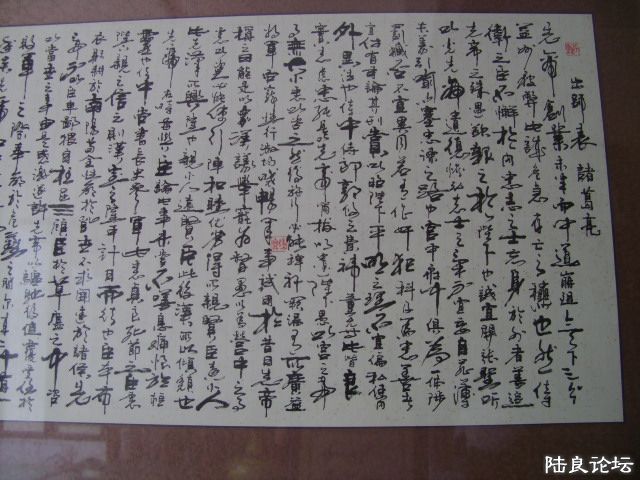 出師表 諸葛亮
先帝創業未半而中道崩殂今天下三分
益州疲弊此誠危急存亡之秋也然侍
衛之臣不懈於內忠志之士忘身於外者蓋追
先帝之殊遇欲報之於陛下也誠宜開張聖聽
以光先帝遺德恢弘志士之氣不宜妄自菲薄
引喻失義以塞忠諫之路也宮中府中俱為一體陟
罰臧否不宜異同若有作奸犯科及為忠善者
宜付有司論其刑賞以昭陛下平明之理不宜偏私使內
外異法也侍中侍郎郭攸之費禕董允等此皆良
實志慮忠純是以先帝簡拔以遺陛下愚以為宮中之
事無大小悉以咨之然後施行必能裨補闕漏有所廣益
將軍向寵性行淑均曉暢軍事試用於昔日先帝
稱之曰能是以眾議舉寵為督愚以為營中之事
悉以咨之必能使行陣和睦優劣得所親賢臣遠小人
此先漢所以興隆也親小人遠賢臣此後漢所以傾頹也
先帝在時每與臣論此事未嘗不嘆息痛恨於桓
靈也侍中尚書長史參軍此悉貞良死節之臣願
陛下親之信之則漢室之隆可計日而待也臣本布
衣躬耕於南陽苟全性命於亂世不求聞達於諸侯先
帝不以臣卑鄙猥自枉屈三顧臣於草廬之中咨
臣以當世之事由是感激遂許先帝以驅馳後值傾覆受任於
敗軍之際奉命於危難之間爾來二十有
陆良论坛